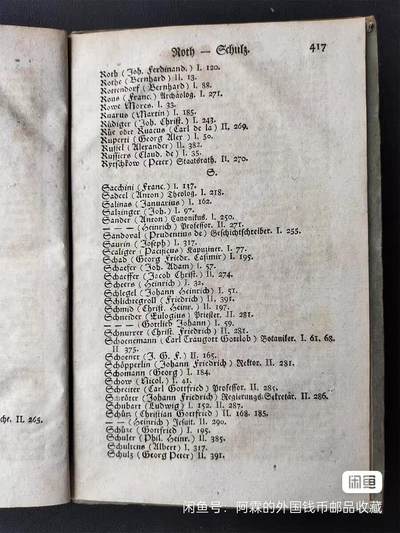 Roth — Schulz. 417
Roth (Joh. Ferdinand.) I. 120.
Rothe (Bernhard) II. 13.
Rottendorf (Bernhard) I. 88.
Rous (Franc.) Archäolog. I. 271.
Rowe Mores. I. 33.
Ruarus (Martin) I. 185.
Rüdiger (Joh. Christ.) I. 243.
Rüe oder Ruaeus (Carl de la) II. 269.
Ruperti (Georg Aler) I. 50.
Russel (Alexander) II. 382.
Ruffiers (Claud. de) I. 35.
Rytschkow (Peter) Staatsrath. II. 270.
S.
Sacchini (Franc.) I. 117.
Sadeel (Anton) Theolog. I. 218.
Salinas (Januarius) I. 162.
Salzinger (Joh.) I. 97.
Sander (Anton) Canonikus. I. 250.
— — — (Heinrich) Professor. II. 271.
Sandoval (Prudentius de) Geschichtschreiber. I. 255.
Saurin (Joseph) I. 317.
Scaliger (Pacificus) Kapuziner. I. 77.
Schad (Georg Friedr. Casimir) I. 195.
Schaefer (Joh. Adam) I. 57.
Schaeffer (Jacob Christ.) II. 274.
Scheers (Heinrich) I. 32.
Schlegel (Johann Heinrich) I. 51.
Schlichtegroll (Friedrich) II. 391.
Schmid (Christ. Heinr.) II. 197.
Schneider (Eulogius) Priester. II. 281.
— — — (Gottlieb Johann) I. 59.
Schnurrer (Christ. Friedrich) II. 281.
Schoenemann (Carl Traugott Gottlob) Botaniker. I. 61. 68.
II. 375.
Schoener (J. G. F.) II. 165.
Schöpperlin (Johann Friedrich) Rektor. II. 281.
Schomann (Georg) I. 184.
Schow (Nicol.) I. 41.
Schreiter (Carl Gottfried) Professor. II. 285.
Schröter (Johann Friedrich) Regierungs-Sekretär. II. 286.
Schubart (Ludwig) I. 152. II. 287.
Schütz (Christian Gottfried) II. 168. 185.
— — (Heinrich) Jesuit. II. 290.
Schütze (Gottfried) I. 195.
Schuler (Phil. Heinr.) II. 385.
Schultens (Albert) I. 317.
Schulz (Georg Peter) II. 391.
che. II. 265.
闲鱼
闲鱼号：阿霖的外国钱币邮品收藏